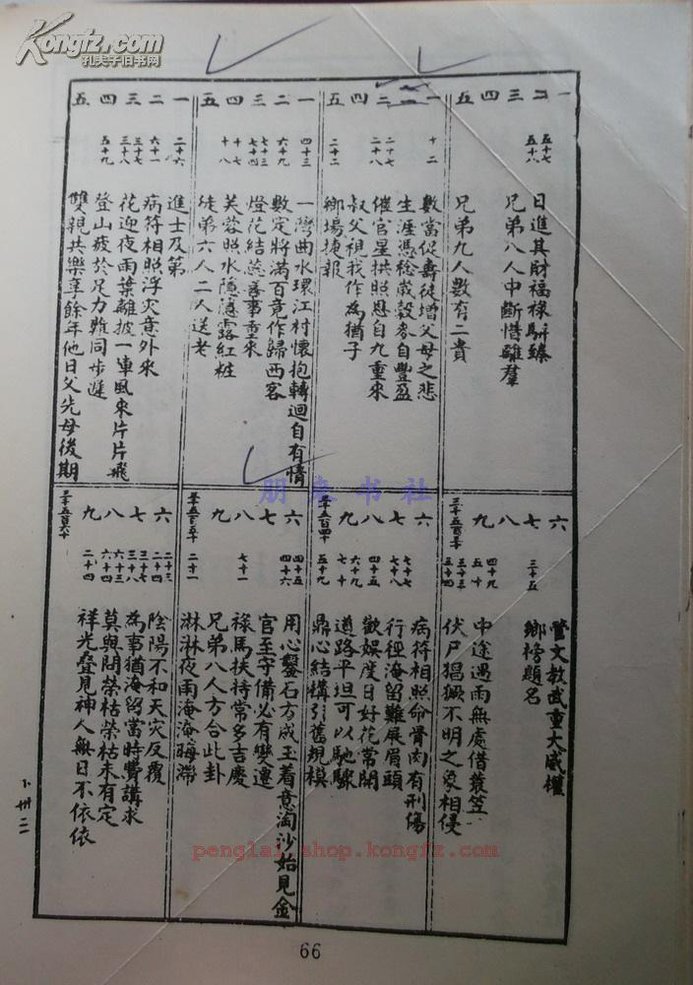 Kongfz.com
孔夫子旧书网
一
二 五十七 五十八 日進其財福祿駢臻
三 兄弟八人中斷惜離羣
四
五 兄弟九人數有二貴
一 十二 數當促壽徒增父母之悲
二 二十七 生涯憑稔歲穀麥自豐盈
三 二十八 催官星拱照恩自九重來
四 叔父祖我作為猶子
五 二十二 鄉場捷報
一 四十三 一灣曲水環江村懷抱轉迴自有情
二 六十九 數定將滿百竟作歸西客
三 七十三 七十四 燈花結蕊喜事重來
四 十七 芙蓉照水隱隱露紅粧
五 十八 徒弟六人二人送老
一 二十六 進士及第
二 六十一 病符相照浮灾意外來
三 三十七 三十八 花迎夜雨葉離披一陣風來片片飛
四 五十九 登山疲於足力難同步遲
五 雙親共樂享餘年他日父先母後期
六 三十五 管文教武重大威權
七 鄉榜題名
八 四十九 五十 中途遇雨無處借蓑笠
九 五十三 五十四 伏尸猖獗不明之象相侵
六 七十七 七十八 病符相照命骨肉有刑傷
七 行徑淹留難展眉頭
八 四十五 歡娛度日好花常開
九 六十九 七十 道路平坦可以馳驟
五十九 鼎心結構引舊規模
六 四十五 四十六 用心鑿石方成玉着意淘沙始見金
七 官至守備必有變遷
八 七十一 祿馬扶持常多吉慶
九 兄弟八人方合此卦
二十一 淋淋夜雨淹淹晦滯
六 二十三 二十四 陰陽不和天灾反覆
七 三十七 三十八 為事猶淹留當時費講求
八 六十三 六十四 莫與問榮枯榮枯未有定
九 二十四 祥光疊見神人無日不依依
卜卅二
朋來书社
penglai.shop.kongfz.com
66